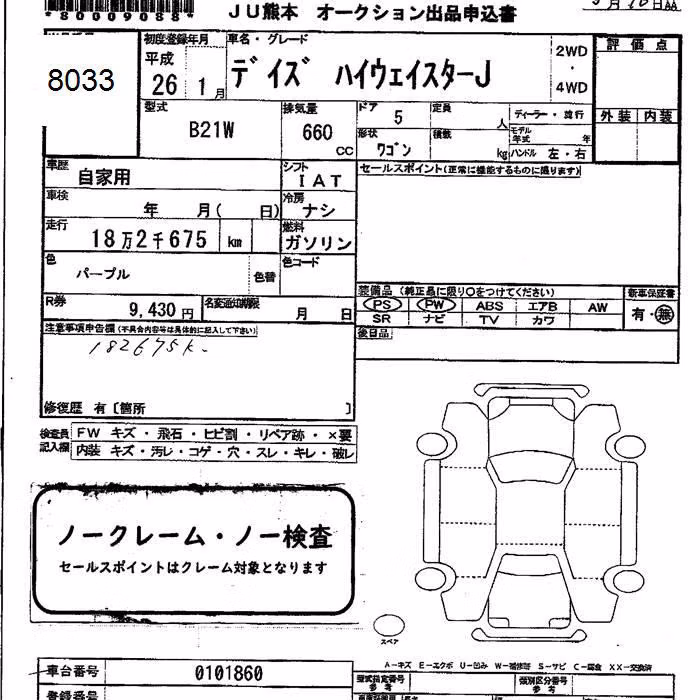 *80009088*
JU熊本 オークション出品申込書
8033
初度登録年月
平成
26 1月
車名・グレード
デイズ ハイウェイスターJ
2WD
・
4WD
評価点
外装 内装
型式
B21W
排気量
660
CC
ドア 5
定員
人
ディーラー・並行
形状
ワゴン
積載
kg
モデル年式 年
ハンドル 左・右
車歴
自家用
シフト
IAT
セールスポイント(正常に機能するものに限ります)
車検
年 月( 日)
冷房
ナシ
走行
18万2千675 km
燃料
ガソリン
色
パープル
色替
色コード
装備品 (純正品に限り○をつけてください)
新車保証書
PS PW ABS エアB AW
SR ナビ TV カワ
有・無
R券
9,430円
名変通知期限
月 日
後日品
注意事項申告欄(不具合内容等は具体的に記入して下さい)
182675K.
修復歴 有〔箇所 〕
検査員
記入欄
FW キズ・飛石・ヒビ割・リペア跡・×要
内装 キズ・汚レ・コゲ・穴・スレ・キレ・破レ
ノークレーム・ノー検査
セールスポイントはクレーム対象となります
スペア
A-キズ E-エクボ U-凹み W-補修跡 S-サビ C-腐食 XX-交換済
車台番号
0101860
型式指定番号
参考
類別区分番号
参考
登録番号